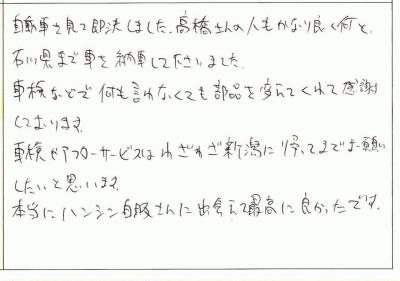 自動車を見て即決しました。高橋さんの人もかなり良く何と、
石川県まで車を納車して下さいました。
車検などで何も言わなくても部品を変えてくれて感謝
しております。
車検やアフローサービスはわざわざ新潟に帰ってまでお願い
したいと思います。
本当にハンシン自販さんに出会えて最高に良かったです。